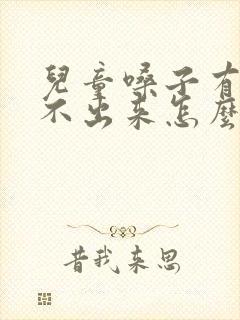 兒童嗓子有
不出来怎麼
昔我来思